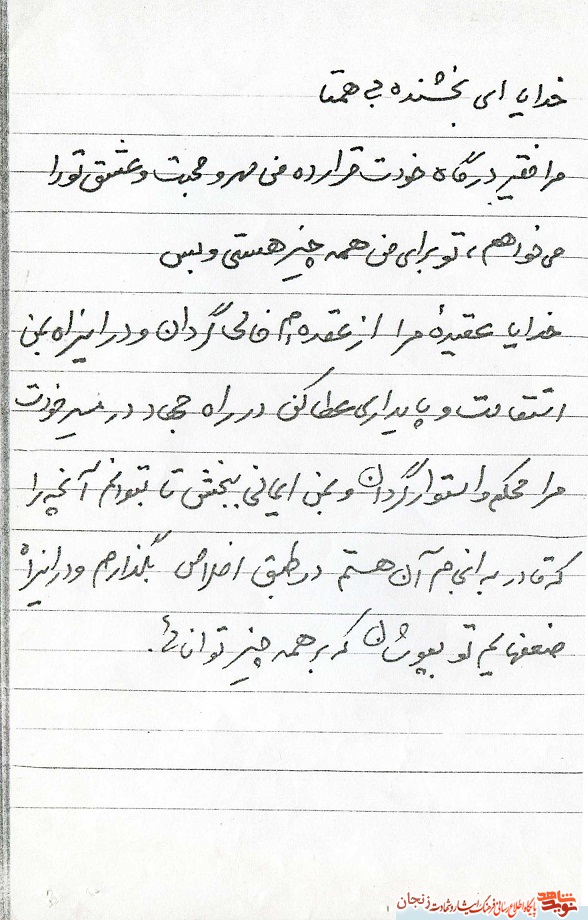 خدایا ای بخشنده بی همتا
مرا فقیر درگاه خودت قرار ده من مهر و محبت و عشق تو را
می خواهم، تو برای من همه چیز هستی و بس
خدایا عقیدهٔ مرا از عقده ام خالی گردان و در اینراه بمن
استقامت و پایداری عطا کن در راه جهاد در مسیر خودت
مرا محکم و استوار گردان و بمن ایمانی ببخش تا بتوانم آنچه را
که قادر به انجام آن هستم در طبق اخلاص بگذارم و در اینراه
ضعفهایم تو بپوشان که بر همه چیز توانائی.
نوید شاهد
پایگاه اطلاع رسانی فرهنگ ایثار و شهادت زنجان